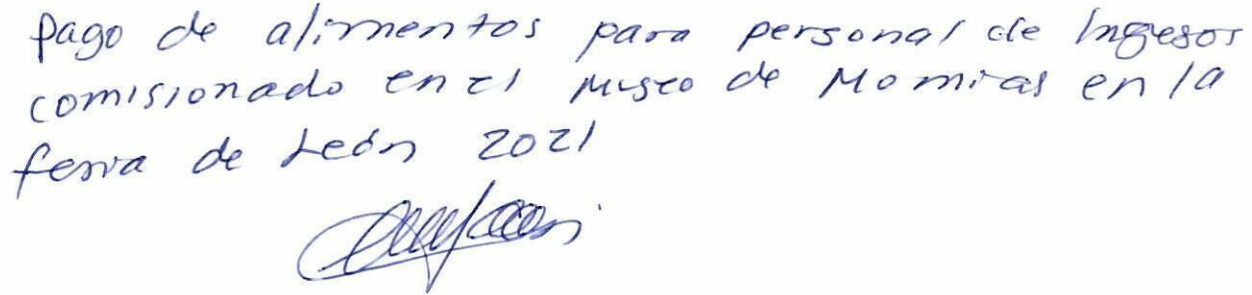 pago de alimentos para personal de Ingesos
comisionado en el Museo de Momias en la
feria de León 2021